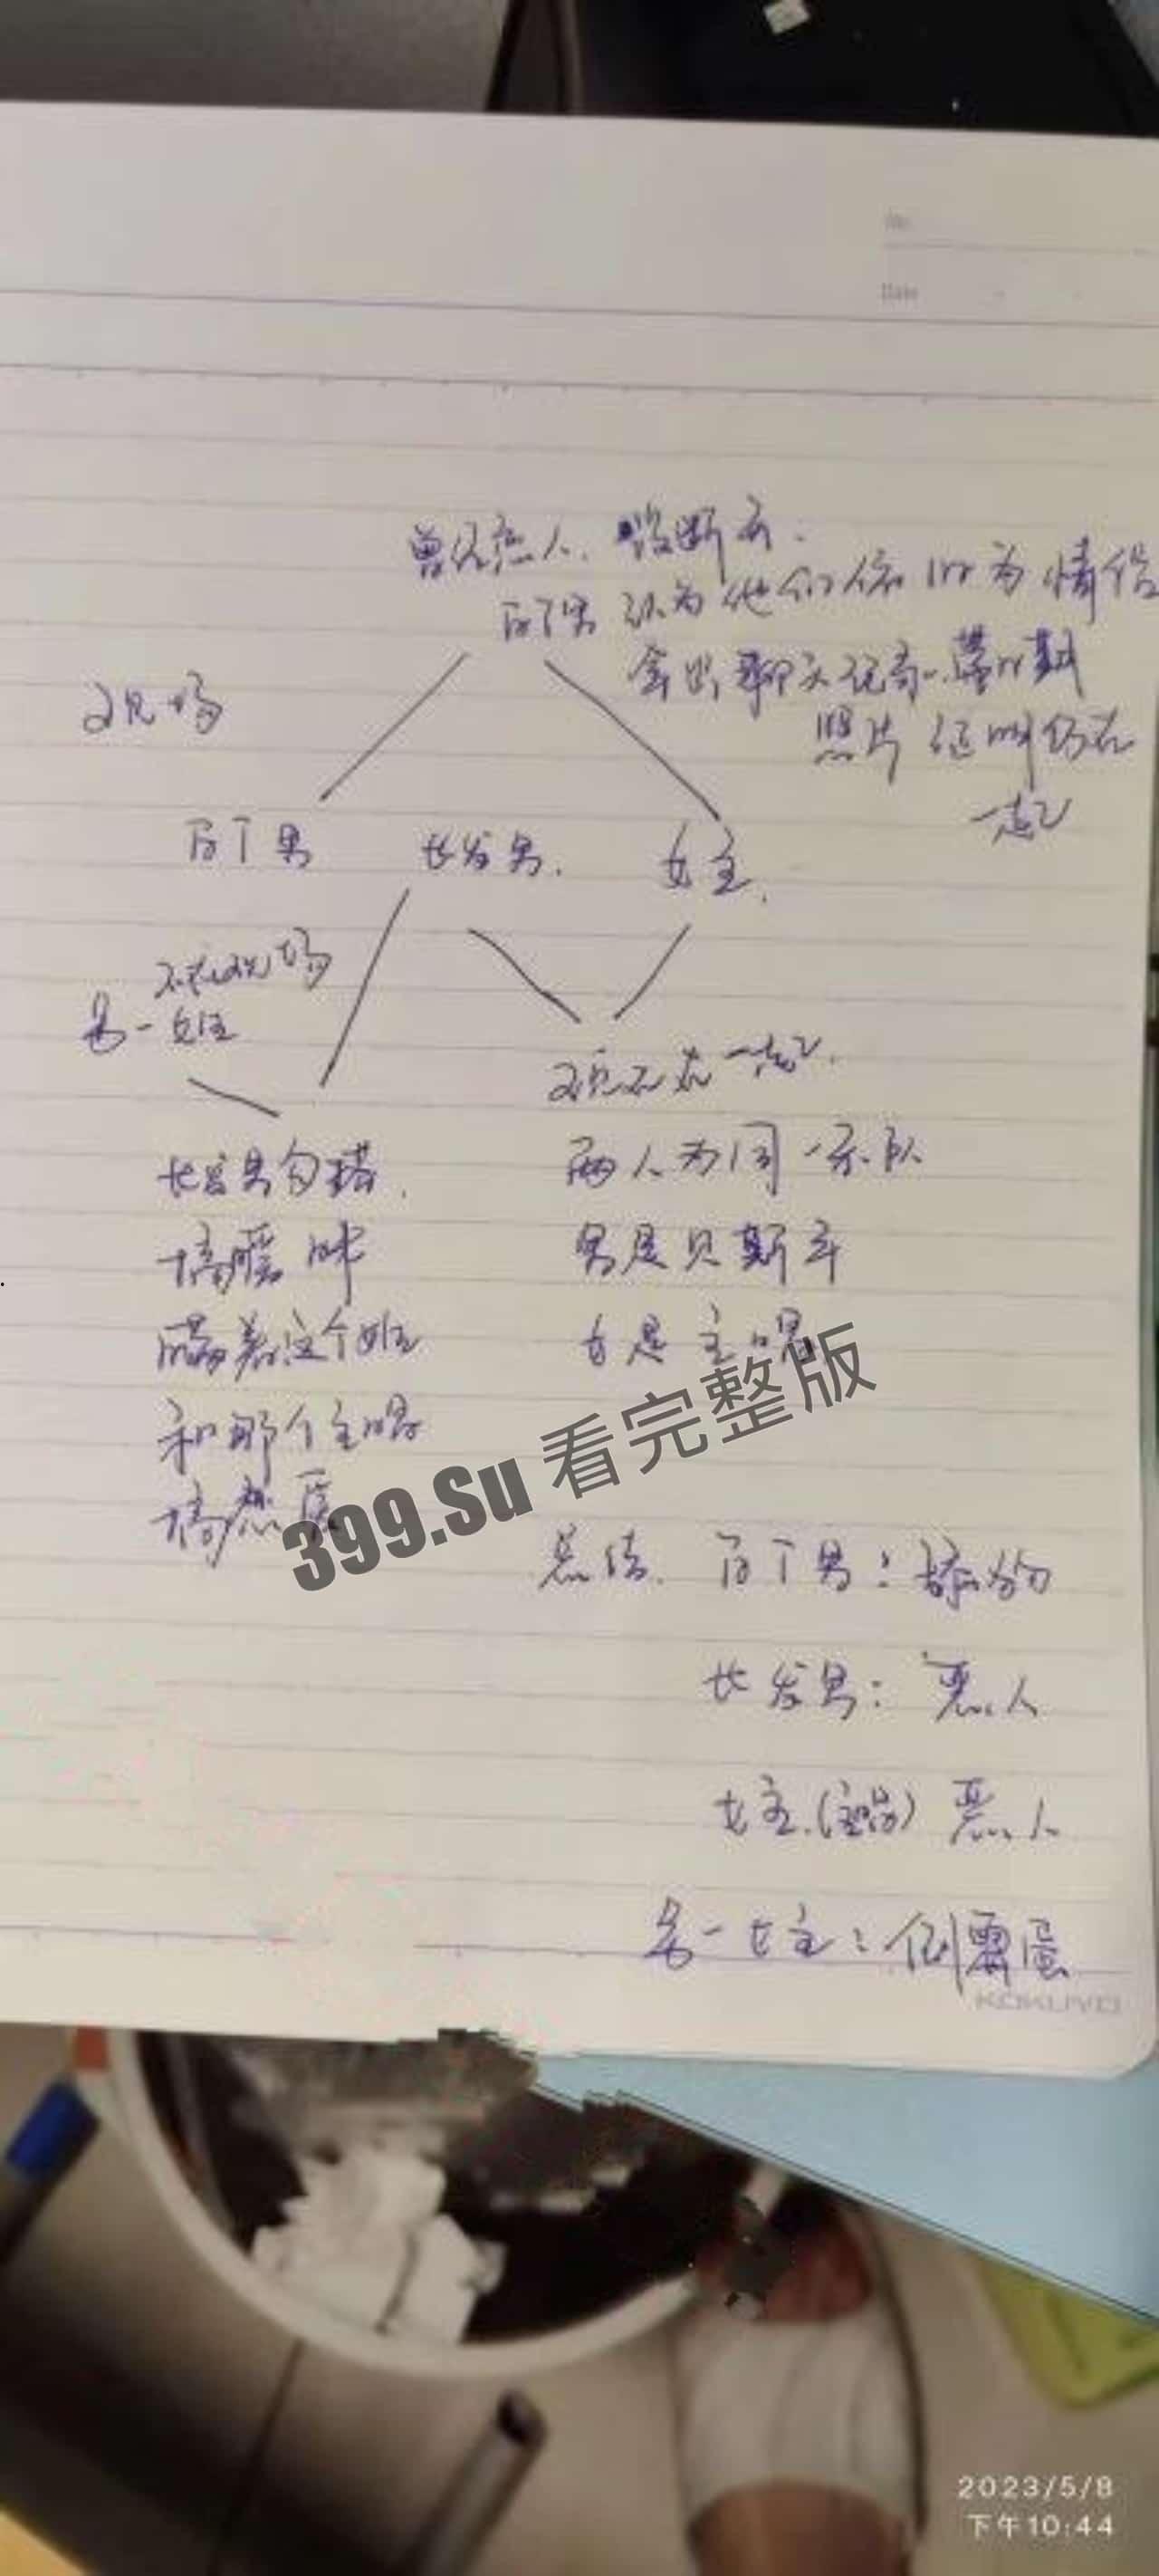 No.
Date
曾经恋人,没断干.
百丁男认为他们依旧为情侣
拿出聊天记录,
照片证明仍在
一起
现场
百丁男 长发男. 女主.
不在现场
另一女主
现在在一起.
长发男勾搭.
两人为同一乐队
搞暧昧
男是贝斯手
瞒着这个女主
女是主唱
和那个主唱
搞
399.Su 看完整版
总结. 百丁男:舔狗
长发男:恶人
女主.(主唱)恶人
另一女主:倒霉蛋
KOKUYO
2023/5/8
下午10:44